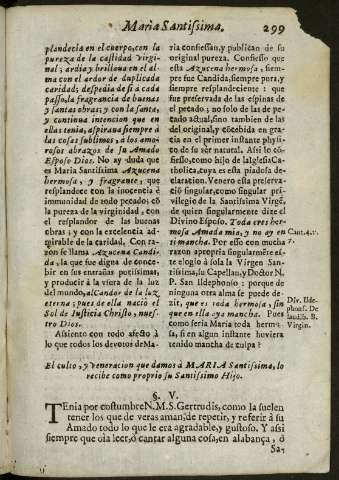 Maria Santissima. 299
plandecia en el cuerpo, con la
pureza de la castidad Virgi-
nal; ardia y brillaua en el al
ma con el ardor de duplicada
caridad; despedia de sì a cada
passo, la fragrancia de buenas
y santas obras; y con la santa,
y continua intencion que en
ellas tenia, aspiraua siempre à
las cosas sublimes, a los amo-
rosos abrazos de su Amado
Esposo Dios. No ay duda que
es Maria Santissima Azucena
hermosa, y fragrante, que
resplandece con la inocencia è
immunidad de todo pecado; cõ
la pureza de la virginidad, con
el resplandor de las buenas
obras; y con la excelencia ad-
mirable de la caridad. Con ra-
zon se llama Azucena Candi-
da, la que fue digna de conce-
bir en sus entrañas purissimas,
y producir à la vista de la luz
del mundo, al Candor de la luz
eterna; pues de ella naciò el
Sol de Iusticia Christo, nues-
tro Dios.
Assiento con todo afecto à
lo que todos los devotos de Ma-
ria confiessan, y publican de su
original pureza. Confiesso que
esta Azucena hermosa, siem-
pre fue Candida, siempre pura, y
siempre resplandeciente: que
fue preservada de las espinas de
el pecado; no solo de las de pe-
cado actual, sino tambien de las
del original, y cõcebida en gra-
cia en el primer instante physi-
co de su sèr natural. Assi lo cõ-
fiesso, como hijo de la Iglesia Ca-
tholica, cuya es esta piadosa de-
claracion. Venero esta preserva-
ciõ singular, como singular pri-
vilegio de la Santissima Virgẽ,
de quien singularmente dize el
Divino Esposo. Toda eres her-
mosa Amada mia, y no ay en
ti mancha. Por esso con mucha
razon apropria singularmẽte es-
te elogio à sola la Virgen San-
tissima, su Capellan, y Doctor N.
P. San Ildephonso: porque de
ninguna otra alma se puede de-
zir, que es toda hermosa, sin
que en ella aya mancha. Pues
como seria Maria toda hermo-
sa, si en algun instante huviera
tenido mancha de culpa?
Cant. 4. v.
7.
Div. Ilde-
phons. De
laudib. B.
Virgin.
El culto, y veneracion que damos à MARIA Santissima, lo
recibe como proprio su Santissimo Hijo.
§. V.
TEnia por costumbre N. M. S. Gertrudis, como la suelen
tener los que de veras aman, de repetir, y referir à su
Amado todo lo que le era agradable, y gustoso. Y assi
siempre que oìa leer, ò cantar alguna cosa, en alabança, ò
Sa-